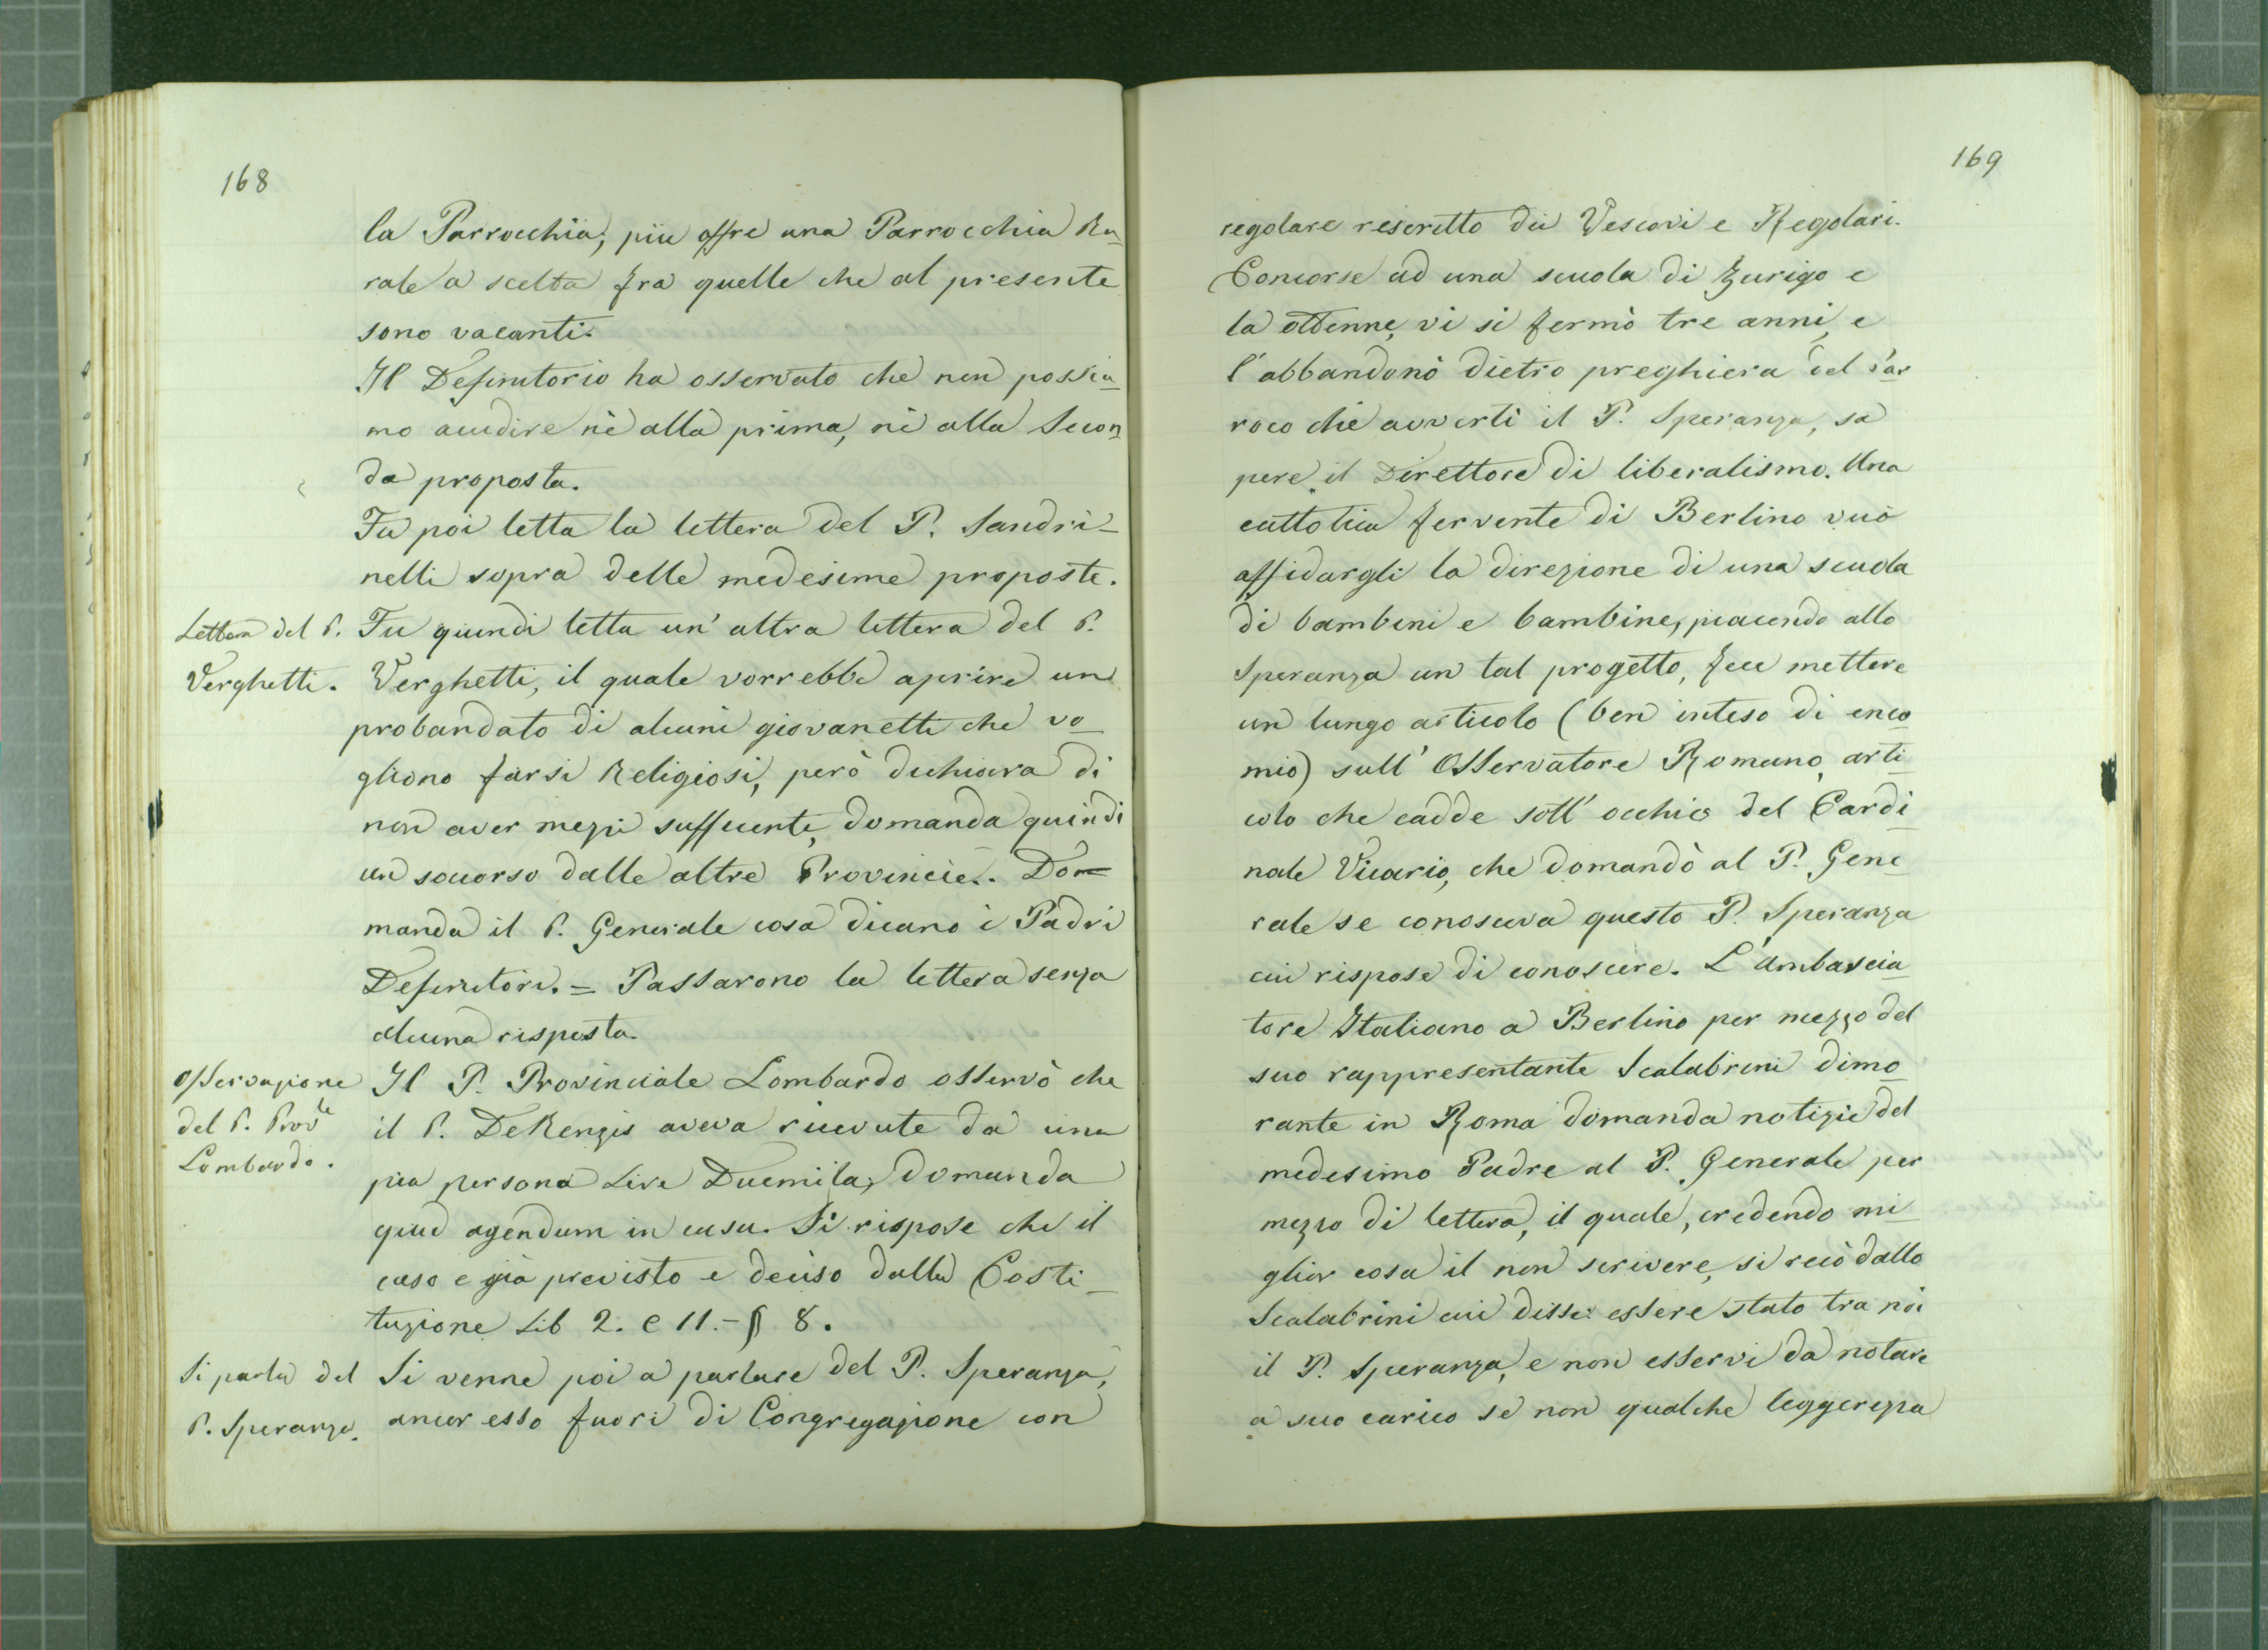 168
la Parrocchia, più offre una Parrocchia Ru_
rale a scelta fra quelle che al presente
sono vacanti.
Il Definitorio ha osservato che non possia_
mo accudire nè alla prima, nè alla Secon_
da proposta.
Fu poi letta la lettera del P. Sandri_
nelli sopra delle medesime proposte.
Lettera del P.
Verghetti.
Fu quindi letta un' altra lettera del P.
Verghetti, il quale vorrebbe aprire un
probandato di alcuni giovanetti che vo_
gliono farsi Religiosi, però dichiara di
non aver mezzi sufficienti, domanda quindi
un soccorso dalle altre Provincie. Do_
manda il P. Generale cosa dicano i Padri
Definitori. = Passarono la lettera senza
alcuna risposta.
Osservazione
del P. Prov.le
Lombardo.
Il P. Provinciale Lombardo osservò che
il P. DeRenzis aveva ricevute da una
pia persona Lire Duemila, domanda
quid agendum in casu. Si rispose che il
caso e già previsto e deciso dalla Costi_
tuzione Lib 2. C 11. - § 8.
Si parla del
P. Speranza.
Si venne poi a parlare del P. Speranza,
ancor esso fuori di Congregazione con
169
regolare rescritto dei Vescovi e Regolari.
Concorse ad una scuola di Zurigo e
la ottenne, vi si fermò tre anni, e
l'abbandonò dietro preghiera del Par
roco che avvertì il P. Speranza, sa
pere il Direttore di liberalismo. Una
cattolica fervente di Berlino vuò
affidargli la direzione di una scuola
di bambini e bambine, piacendo allo
Speranza un tal progetto, fece mettere
un lungo articolo (ben inteso di enco_
mio) sull' Osservatore Romano, arti_
colo che cadde sott' occhio del Cardi_
nale Vicario, che domandò al P. Gene_
rale se conosceva questo P. Speranza
cui rispose di conoscere. L'ambascia_
tore Italiano a Berlino per mezzo del
suo rappresentante Scalabrini dimo_
rante in Roma domanda notizie del
medesimo Padre al P. Generale per
mezzo di lettera, il quale, credendo mi_
glior cosa il non scrivere, si recò dallo
Scalabrini cui disse: essere stato tra noi
il P. Speranza, e non esservi da notare
a suo carico se non qualche leggerezza